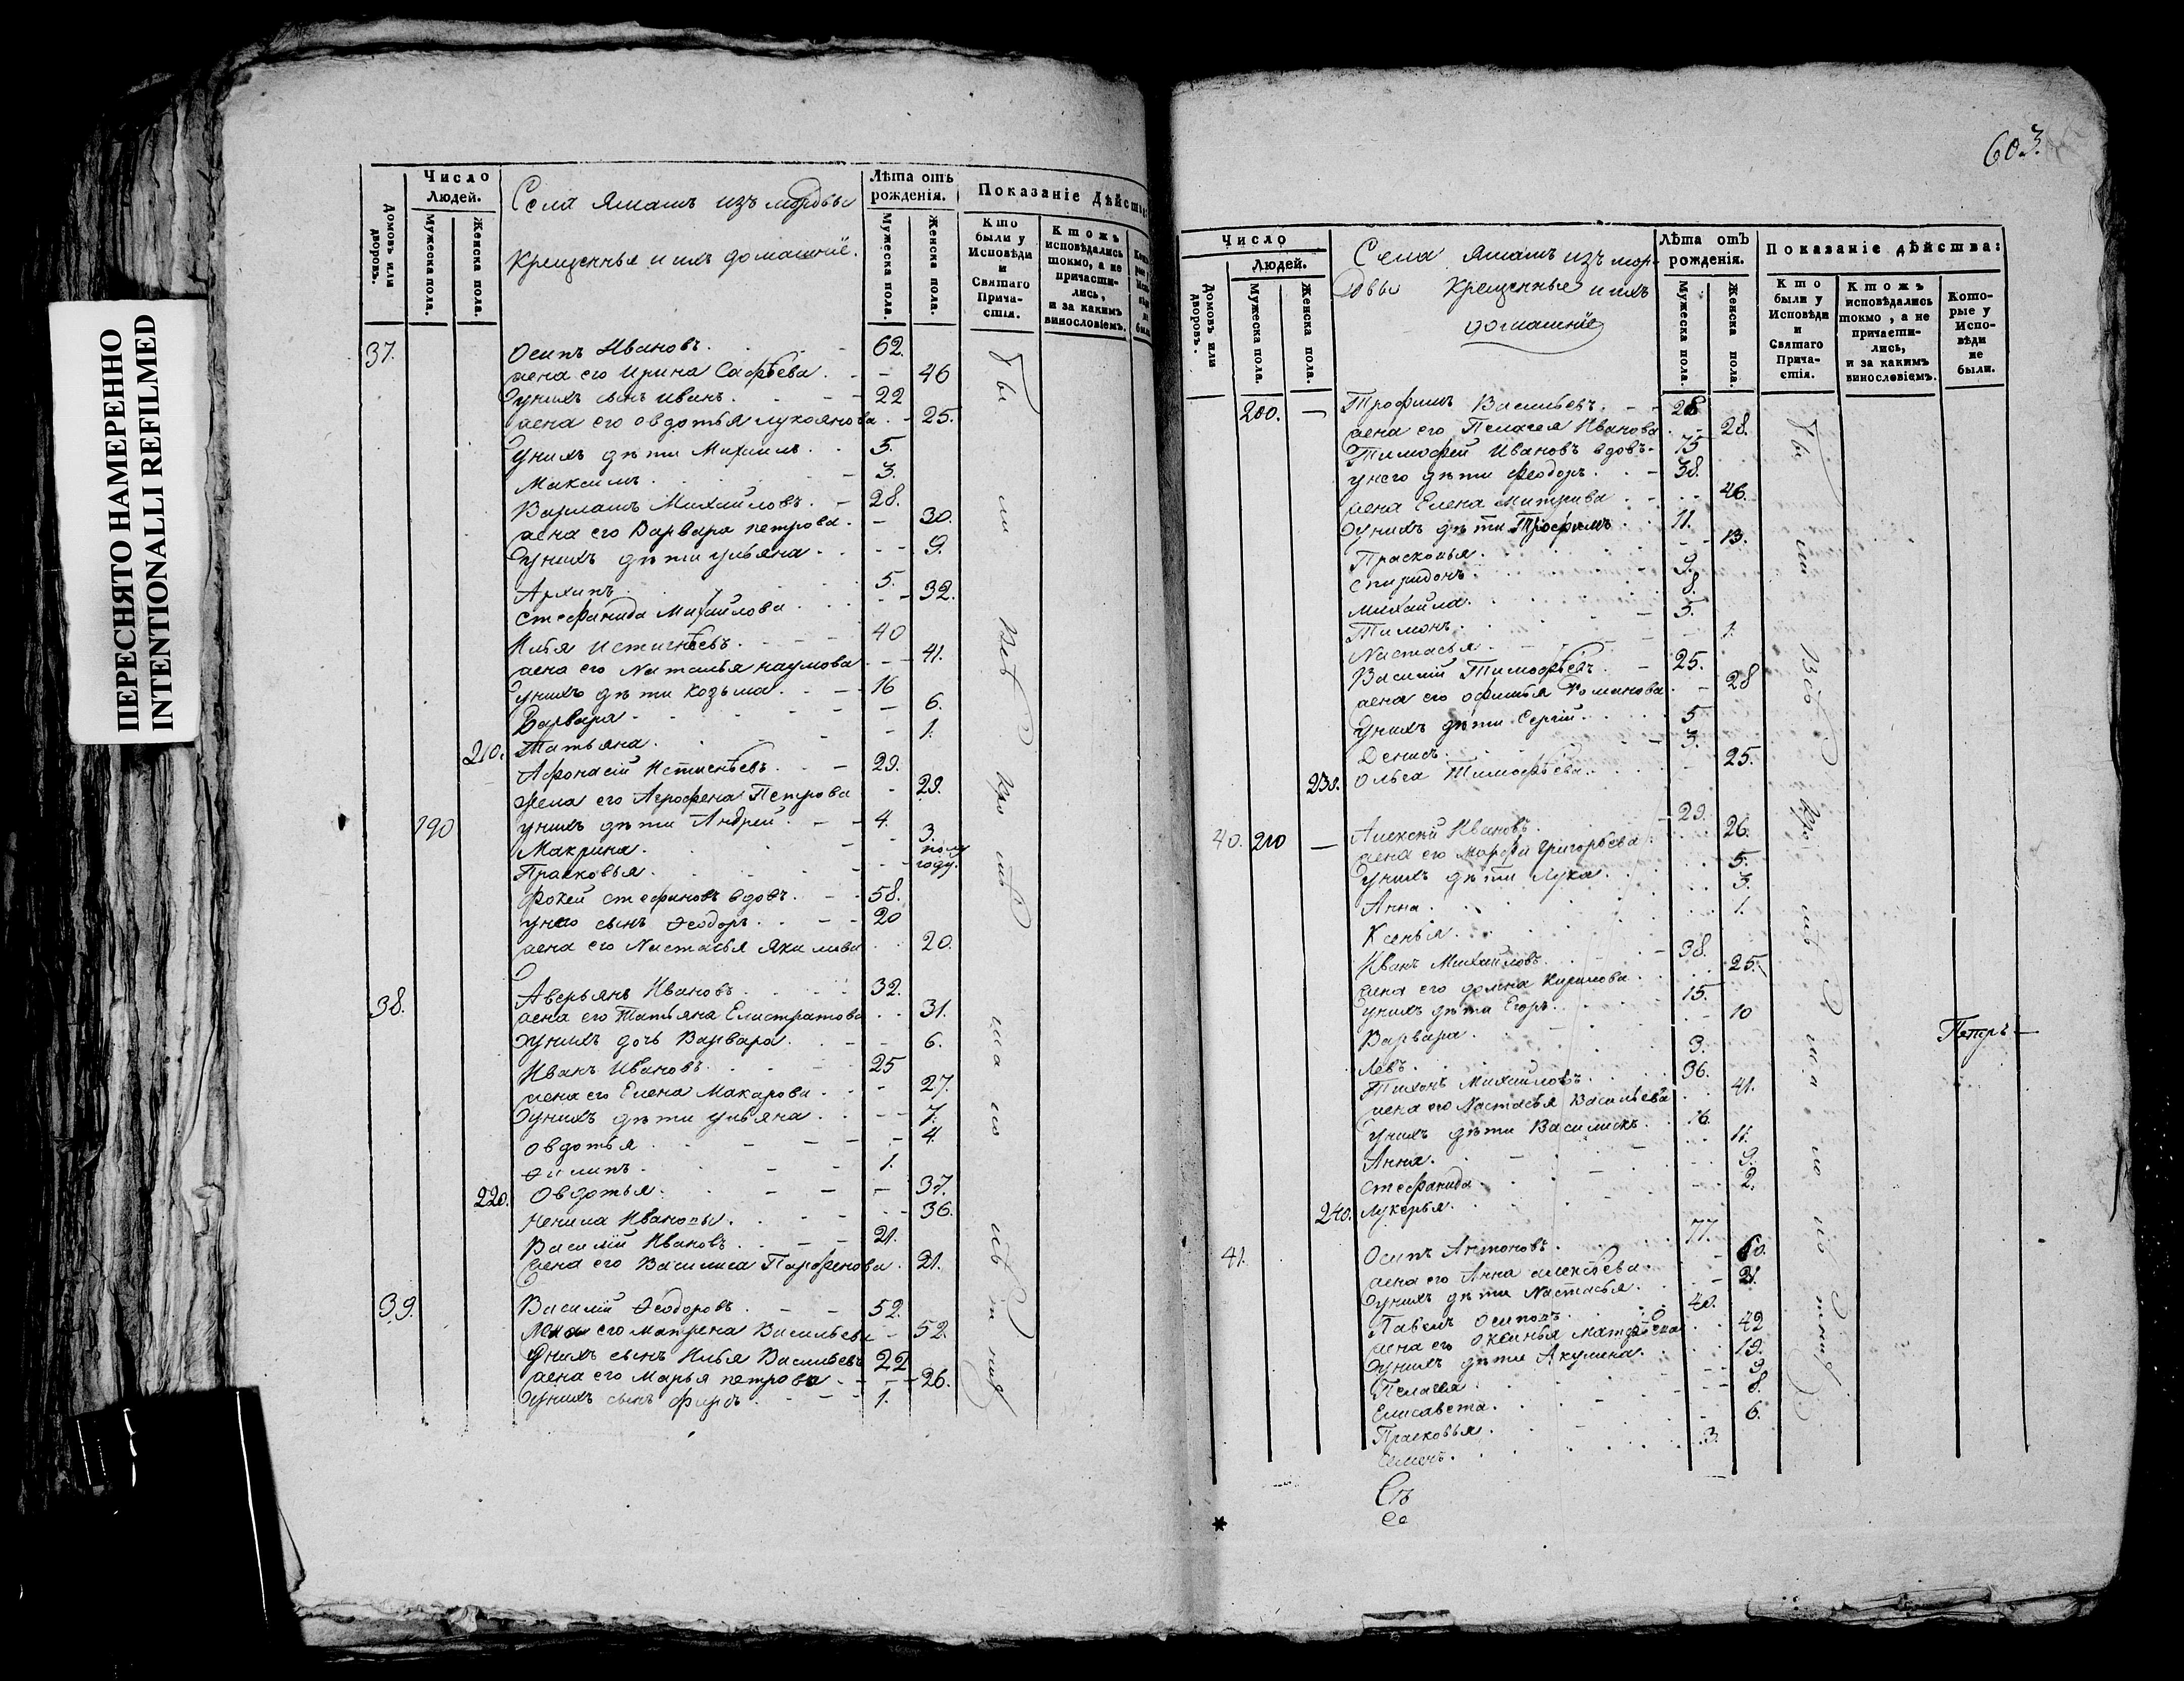 ПЕРЕСНЯТО НАМЕРЕННО
INTENTIONALLI REFILMED
Число Людей.
Домовъ или дворовъ.
Мужеска пола.
Женска пола.
Села Ямашъ изъ мордвы
крещенные и ихъ домашніе.
Лѣта отъ рожденія.
Мужеска пола.
Женска пола.
Показаніе дѣйства:
Кто были у Исповѣди и Святаго Причастія.
Ктожъ исповѣдались токмо, а не причастились, и за какимъ винословіемъ.
37. Осипъ Ивановъ. 62.
жена его Ирина Савѣева. 46
у нихъ сынъ иванъ. 22
жена его овдотья лукоянова. 25.
у нихъ дѣти Михаилъ. 5.
Максимъ. 3.
Варламъ Михайловъ. 28.
жена его Варвара петрова. 30.
у нихъ дѣти ульяна. 9.
Архипъ. 5.
Стефанида Михайлова. 32.
Илья Истигнѣевъ. 40
жена его Наталья наумова. 41.
у нихъ дѣти козьма. 16
Варвара. 6.
210. Татьяна. 1.
Афонасій Истигнѣевъ. 29.
жена его Агрофена Петрова 29.
190 у нихъ дѣти Андрей. 4.
Макрина. 3.
Прасковья. полу году.
Фокей стефановъ вдовъ. 58.
у него сынъ Ѳеодоръ. 20
жена его Настасья Якимова 20.
38. Аверьянъ Ивановъ. 32.
жена его Татьяна Елистратова 31.
у нихъ дочь Варвара. 6.
Иванъ Ивановъ. 25
жена его Елена Макарова. 27.
у нихъ дѣти ульяна. 7.
овдотья. 4.
Ѳилипъ. 1.
220. Овдотья. 37.
Ненила Ивановы. 36.
Василій Ивановъ. 21.
жена его Василиса Парфенова. 21.
39. Василій Ѳеодоровъ. 52.
жена его матрена Васильева 52.
у нихъ сынъ Илья Васильевъ 22
жена его Марья петрова 26.
у нихъ сынъ 1.
603.
Число Людей.
Домовъ или дворовъ.
Мужеска пола.
Женска пола.
Села Ямашъ изъ мор-
двы крещенные и ихъ
домашніе
Лѣта отъ рожденія.
Мужеска пола.
Женска пола.
Показаніе дѣйства:
Кто были у Исповѣди и Святаго Причастія.
Ктожъ исповѣдались токмо, а не причастились, и за какимъ винословіемъ.
Которые у Исповѣди не были.
200. Трофимъ Васильевъ. 28
жена его Пелагея Иванова 28.
Тимофей Ивановъ вдовъ. 75
у него дѣти Феодоръ. 38.
жена Елена Митрива 46.
у нихъ дѣти Трофимъ 11.
Прасковья. 13.
Спиридонъ. 9.
Михайла. 8.
Тимонъ. 5.
Настасья. 1.
Василій Тимофѣевъ. 25.
жена его офимья Романова. 28
у нихъ дѣти Сергій. 5
Денисъ. 3.
230. Ольга Тимофѣева. 25.
40. 210 Алексѣй Ивановъ. 29.
жена его Марфа Григорьева 26.
у нихъ дѣти Лука. 5.
Анна. 3.
Ксенья. 1.
Иванъ Михайловъ. 38.
жена его домна Кирилова. 25.
у нихъ дѣти Егоръ. 15.
Варвара. 10
Левъ. 3.
Тихонъ Михайловъ. 36.
жена его Настасья Васильева 41.
у нихъ дѣти Василискъ. 16.
Анна. 11.
Стефанида. 9.
240. лукерья. 2.
41. Осипъ Антоновъ. 77.
жена его Анна алексѣева. 60.
у нихъ дѣти Настасья. 21.
Павелъ Осиповъ. 40.
жена его оксинья Матфѣева 42
у нихъ дѣти Акулина. 19.
Пелагея. 9.
Елисавета. 8.
Прасковья. 6.
Семенъ. 3.
Петръ